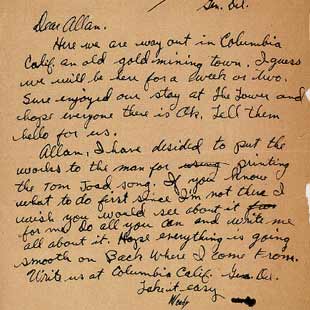 Gen. Del.
Dear Allan.
Here we are way out in Columbia
Calif. an old gold mining town. I guess
we will be here for a week or two.
Sure enjoyed our stay at The Tower and
hope everyone there is Ok. Tell them
hello for us.
Allan, I have decided to put the
works to the man for using printing
the Tom Joad song. If you know
what to do first since I'm not there I
wish you would see about it for
for me do all you can and write me
all about it. Hope everything is going
smooth on Back Where I Come From.
Write us at Columbia Calif. Gen Del.
Take it easy
Woody